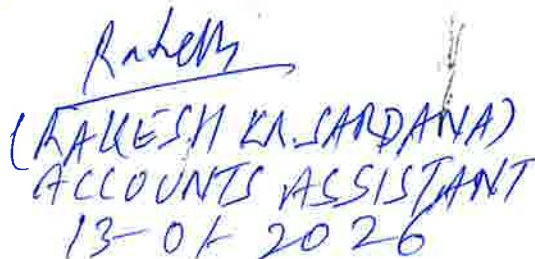 Rakesh
(RAKESH KR. SARDANA)
ACCOUNTS ASSISTANT
13-01-2026